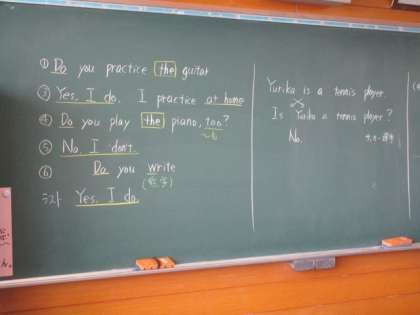 ① Do you practice the guitar
③ Yes, I do. I practice at home
④ Do you play the piano, too?
〜も
⑤ No, I don't.
⑥ Do you write
ラスト Yes, I do.
Yurika is a tennis player.
Is Yurika a tennis player?
No,